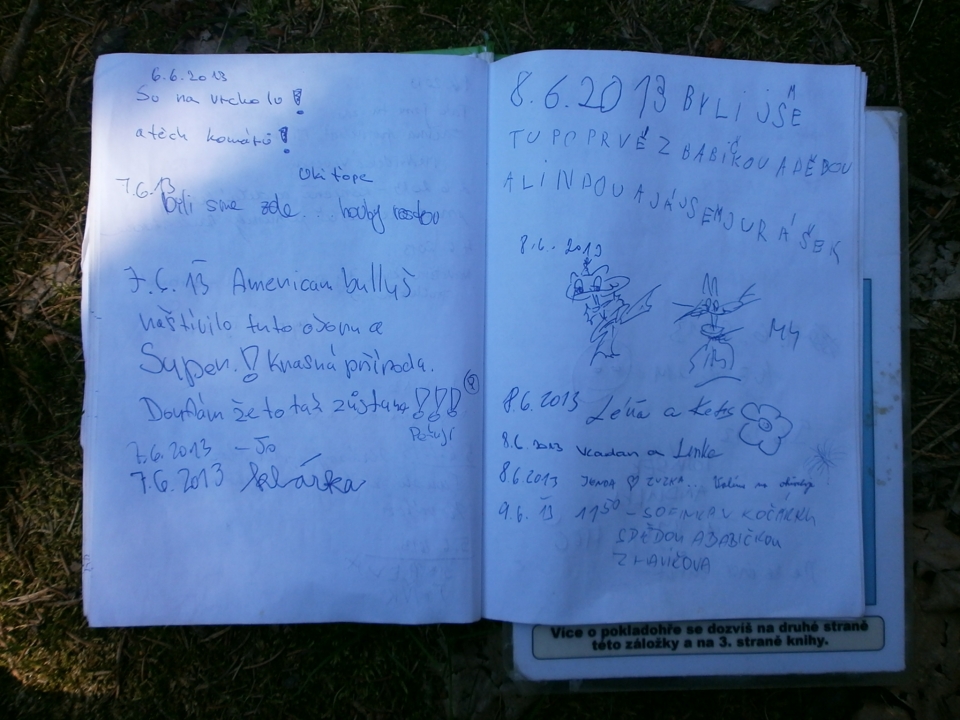 6.6.2013
So na vrcholu!
a těch komárů!
7.6.13
byli sme zde... houby rostou
7.6.13 American bullyš
naštívilo tuto oboru a
Super.! Krasná příroda.
Doufám že to tak zůstane!!!
7.6.2013 - Jo
7.6.2013 Klárka
8.6.2013 BYLI JSME
TU POPRVÉ Z BABIČKOU A DĚDOU
A LINDOU A JÁ JSEM JURÁŠEK
8.6.2013
8.6.2013 a
8.6.2013 a Lenka
8.6.2013 JENDA ♡ ZUZKA..
9.6.13 11⁵⁰ - SOFINKA V KOČÁRKU
S DĚDOU A BABIČKOU
Z HAVÍŘOVA
Více o pokladohře se dozvíš na druhé straně
této záložky a na 3. straně knihy.